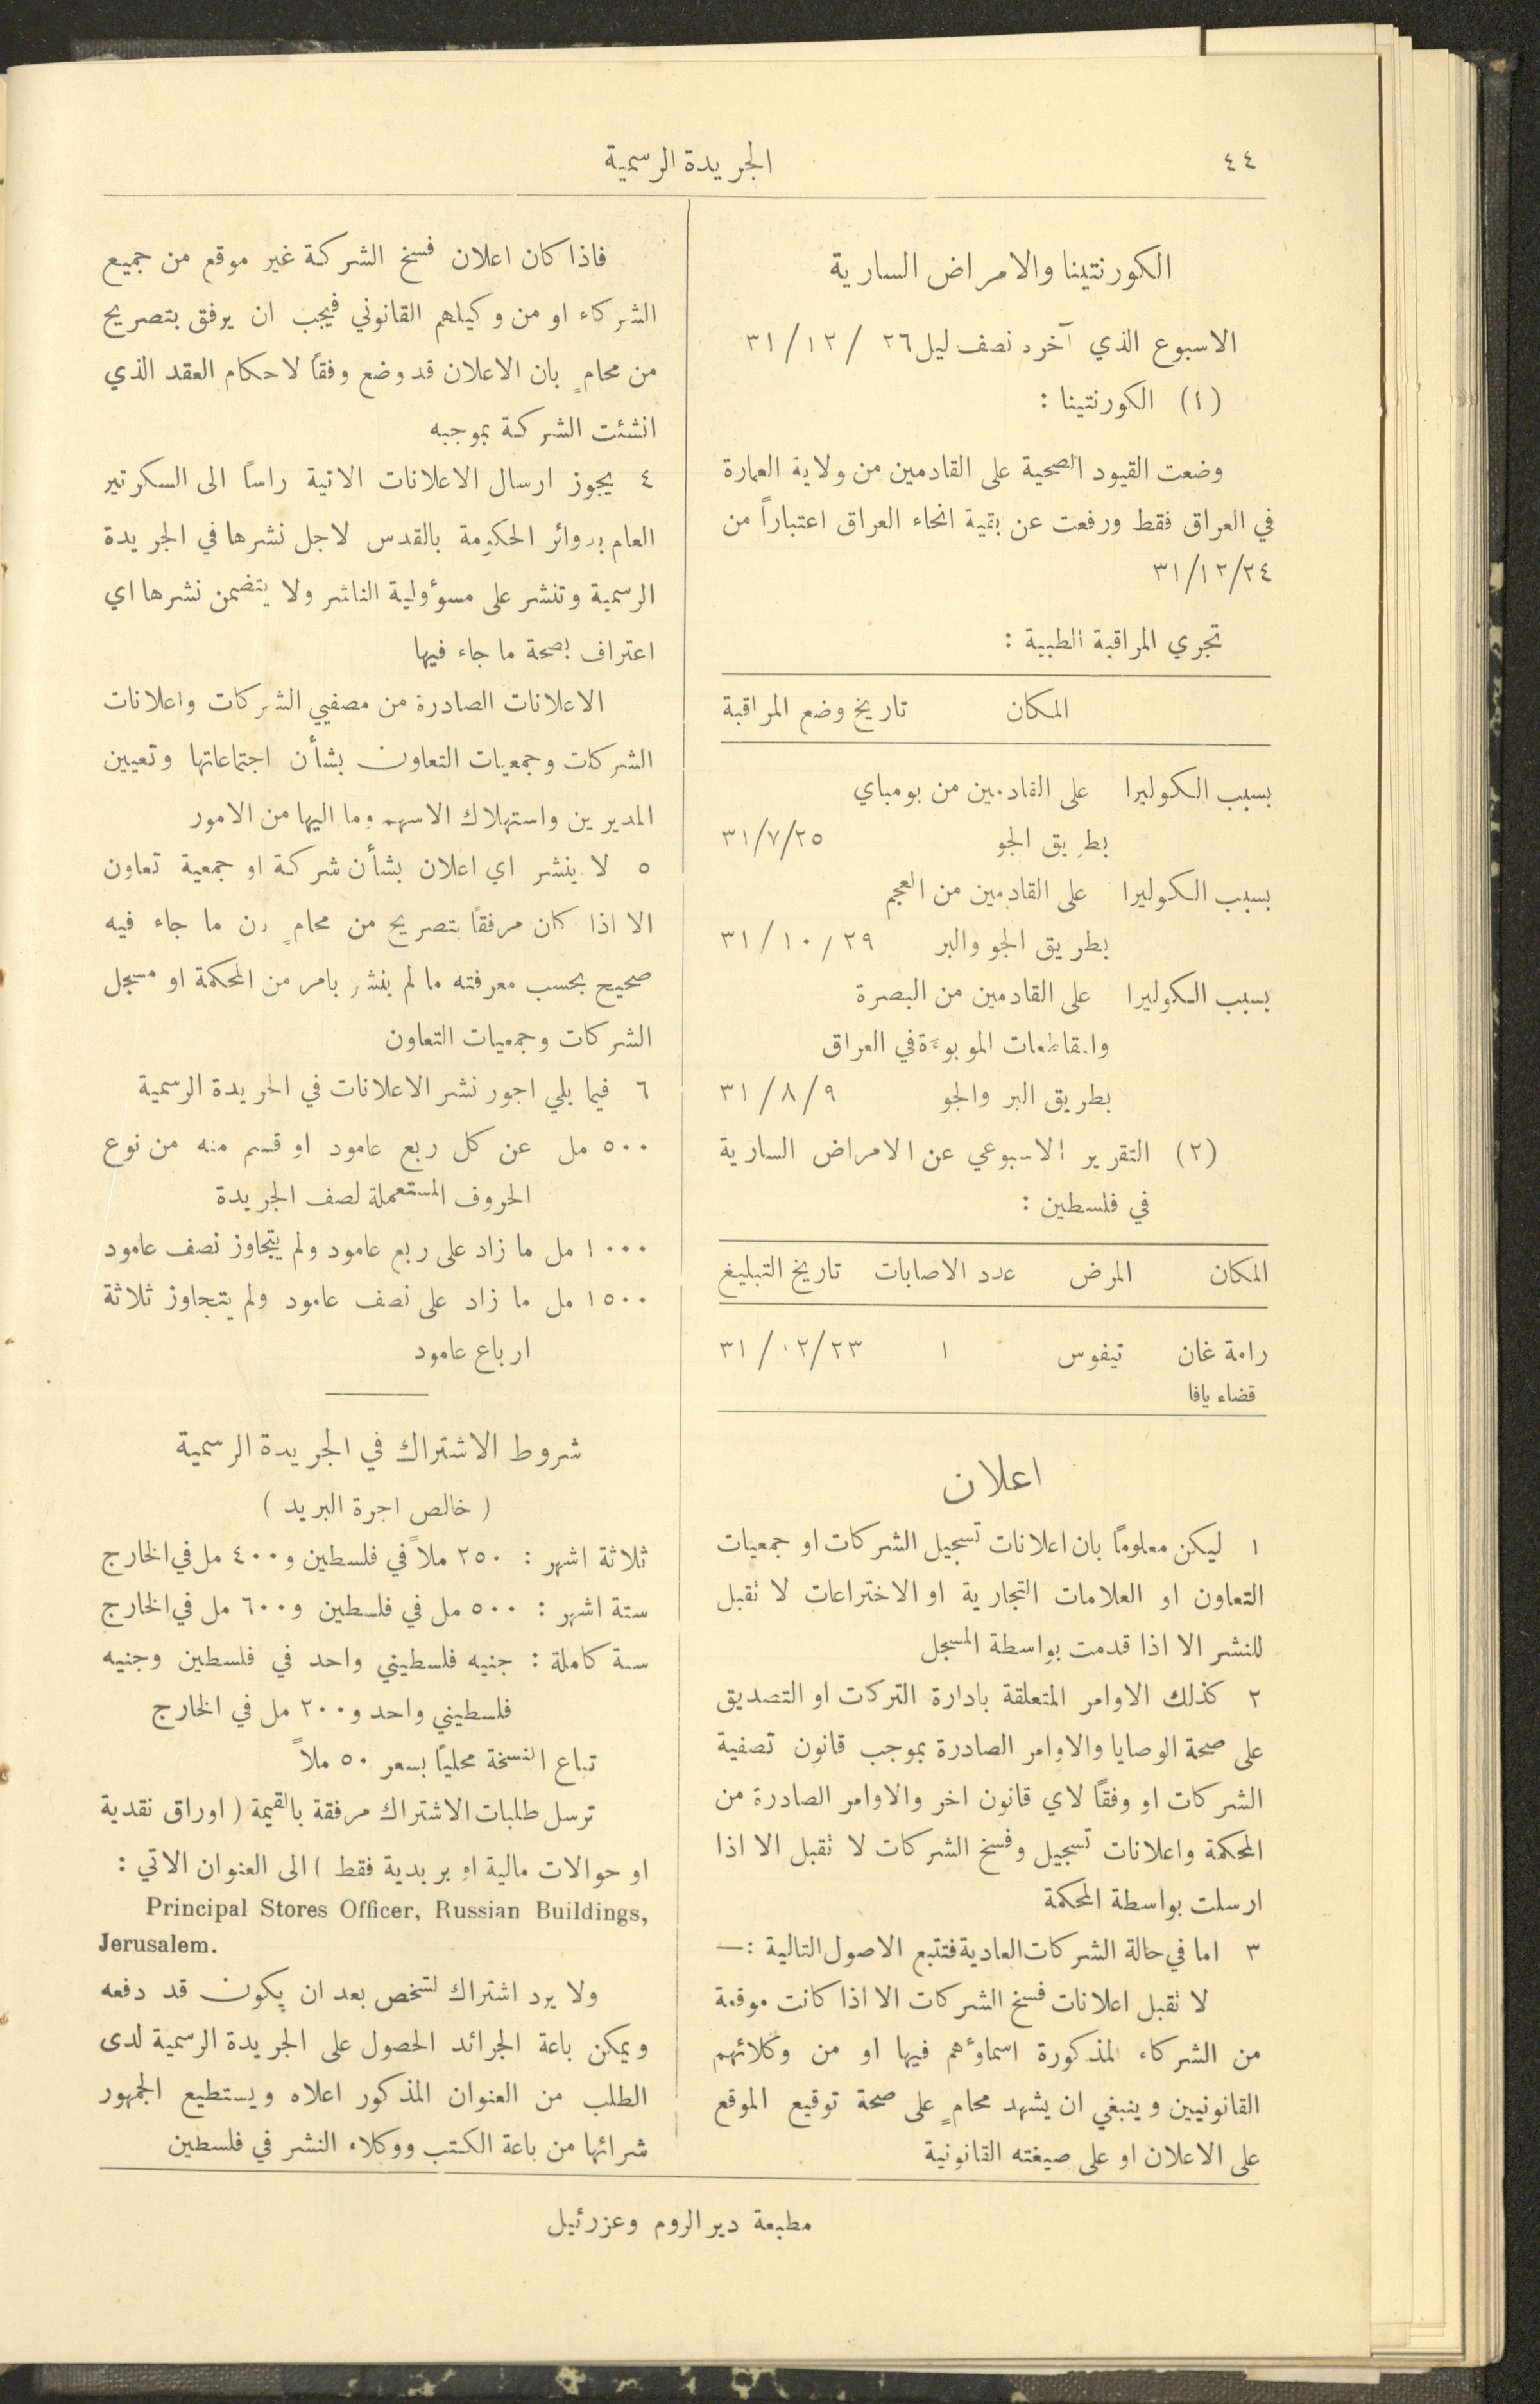 ٤٤
الجريدة الرسمية
الكورنتينا والامراض السارية
الاسبوع الذي آخره نصف ليل ٢٦ / ١٢ / ٣١
(١) الكورنتينا :
وضعت القيود الصحية على القادمين من ولاية العمارة
في العراق فقط ورفعت عن بقية انحاء العراق اعتباراً من
٣١/١٢/٢٤
تجري المراقبة الطبية :
المكان تاريخ وضع المراقبة
بسبب الكوليرا على القادمين من بومباي
بطريق الجو ٣١/٧/٢٥
بسبب الكوليرا على القادمين من العجم
بطريق الجو والبر ٣١/١٠/٢٩
بسبب الكوليرا على القادمين من البصرة
والمقاطعات الموبوءة في العراق
بطريق البر والجو ٣١/٨/٩
(٢) التقرير الاسبوعي عن الامراض السارية
في فلسطين :
المكان المرض عدد الاصابات تاريخ التبليغ
رامة غان تيفوس ١ ٣١/١٢/٢٣
قضاء يافا
اعلان
١ ليكن معلوماً بان اعلانات تسجيل الشركات او جمعيات
التعاون او العلامات التجارية او الاختراعات لا تقبل
للنشر الا اذا قدمت بواسطة المسجل
٢ كذلك الاوامر المتعلقة بادارة التركات او التصديق
على صحة الوصايا والاوامر الصادرة بموجب قانون تصفية
الشركات او وفقاً لاي قانون اخر والاوامر الصادرة من
المحكمة واعلانات تسجيل وفسخ الشركات لا تقبل الا اذا
ارسلت بواسطة المحكمة
٣ اما في حالة الشركات العادية فتتبع الاصول التالية :—
لا تقبل اعلانات فسخ الشركات الا اذا كانت موقعة
من الشركاء المذكورة اسماؤهم فيها او من وكلائهم
القانونيين وينبغي ان يشهد محامٍ على صحة توقيع الموقع
على الاعلان او على صيغته القانونية
فاذا كان اعلان فسخ الشركة غير موقع من جميع
الشركاء او من وكيلهم القانوني فيجب ان يرفق بتصريح
من محامٍ بان الاعلان قد وضع وفقاً لاحكام العقد الذي
انشئت الشركة بموجبه
٤ يجوز ارسال الاعلانات الاتية راساً الى السكرتير
العام بدوائر الحكومة بالقدس لاجل نشرها في الجريدة
الرسمية وتنشر على مسؤولية الناشر ولا يتضمن نشرها اي
اعتراف بصحة ما جاء فيها
الاعلانات الصادرة من مصفيي الشركات واعلانات
الشركات وجمعيات التعاون بشأن اجتماعاتها وتعيين
المديرين واستهلاك الاسهم وما اليها من الامور
٥ لا ينشر اي اعلان بشأن شركة او جمعية تعاون
الا اذا كان مرفقاً بتصريح من محامٍ ان ما جاء فيه
صحيح بحسب معرفته ما لم ينشر بامر من المحكمة او مسجل
الشركات وجمعيات التعاون
٦ فيما يلي اجور نشر الاعلانات في الجريدة الرسمية
٥٠٠ مل عن كل ربع عامود او قسم منه من نوع
الحروف المستعملة لصف الجريدة
١٠٠٠ مل ما زاد على ربع عامود ولم يتجاوز نصف عامود
١٥٠٠ مل ما زاد على نصف عامود ولم يتجاوز ثلاثة
ارباع عامود
شروط الاشتراك في الجريدة الرسمية
( خالص اجرة البريد )
ثلاثة اشهر : ٢٥٠ ملاً في فلسطين و ٤٠٠ مل في الخارج
ستة اشهر : ٥٠٠ مل في فلسطين و ٦٠٠ مل في الخارج
سنة كاملة : جنيه فلسطيني واحد في فلسطين وجنيه
فلسطيني واحد و ٢٠٠ مل في الخارج
تباع النسخة محلياً بسعر ٥٠ ملاً
ترسل طلبات الاشتراك مرفقة بالقيمة ( اوراق نقدية
او حوالات مالية او بريدية فقط ) الى العنوان الاتي :
Principal Stores Officer, Russian Buildings,
Jerusalem.
ولا يرد اشتراك لشخص بعد ان يكون قد دفعه
ويمكن باعة الجرائد الحصول على الجريدة الرسمية لدى
الطلب من العنوان المذكور اعلاه ويستطيع الجمهور
شرائها من باعة الكتب ووكلاء النشر في فلسطين
مطبعة دير الروم وعزرئيل